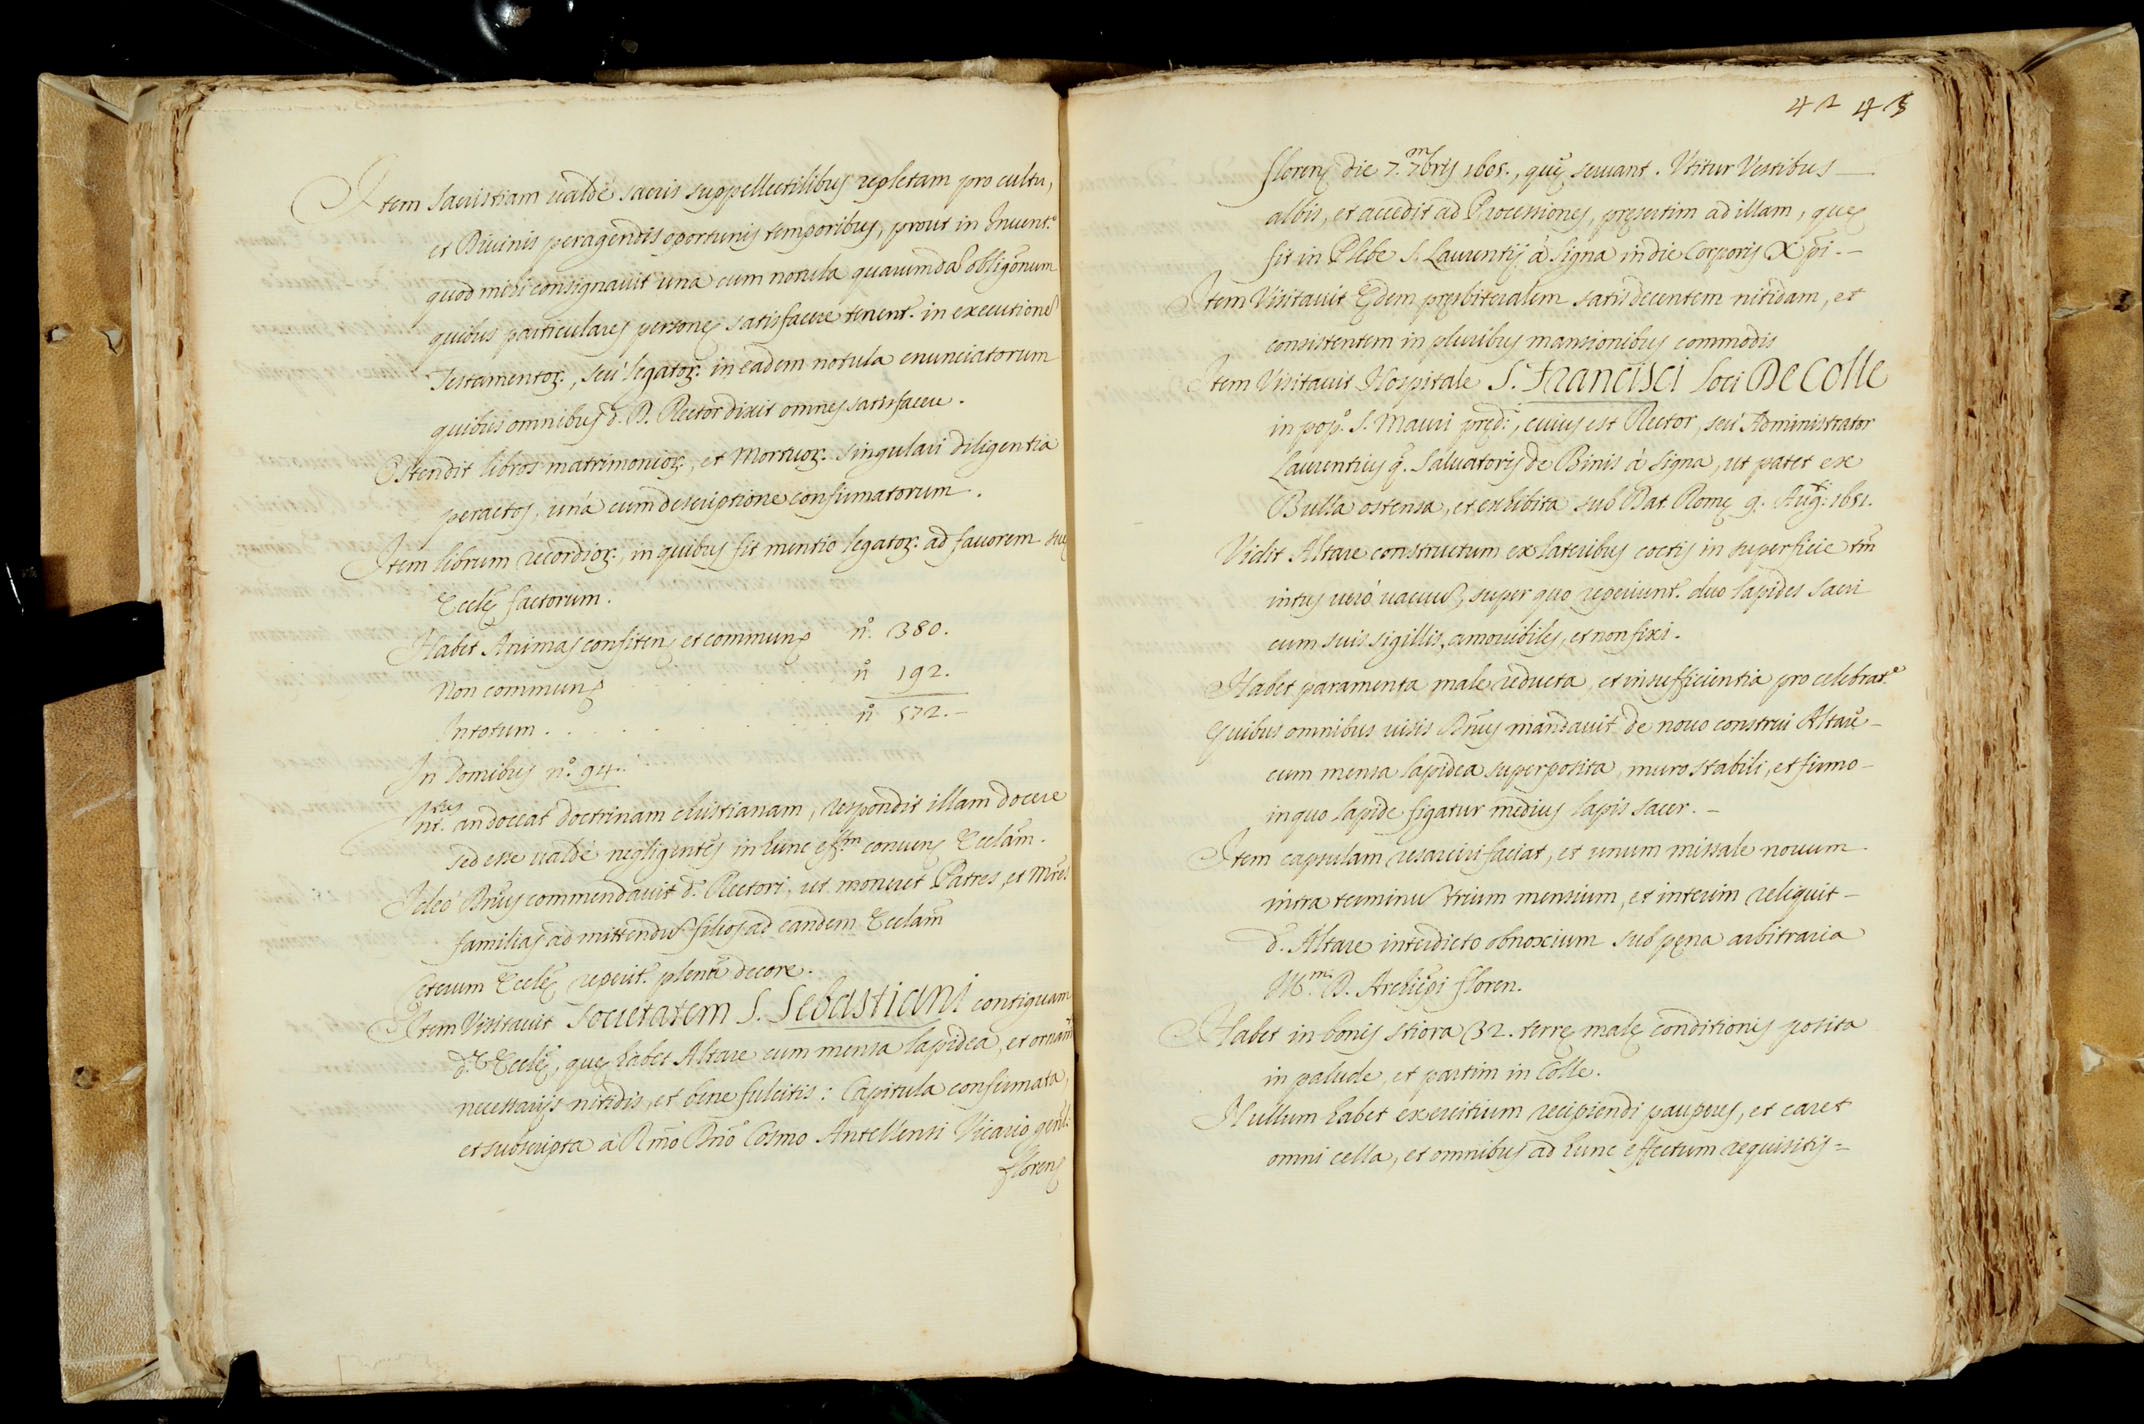 Item Sacristiam valdè sacris suppellectilibus repletam pro cultu,
et Divinis peragendis oportunis temporibus, prout in Invent.º
quod mihi consignavit una cum notula quarumdã obligõnum
quibus particulares personę satisfacere tenent.r in executionẽ
Testamentoꝝ, seu' legatoꝝ in eadem notula enunciatorum
quibus omnibus d. D. Rector dixit omnes satisfacere.
Ostendit libros matrimonioꝝ, et Mortuoꝝ singulari diligentia
peractos, unà cum descriptione confirmatorum.
Item librum recordioꝝ, in quibus fit mentio legatoꝝ ad favorem suę
Ecclę factorum.
Habet Animas confiten; et commun; nº. 380.
Non commun; . . . . . . nº 192.
In totum . . . . . . . nº 572.–
In Domibus nº. 94.
Int.tus an doceat doctrinam christianam, respondit illam docere
sed esse valdè negligentes in hunc eff.m conven; Ecclam.
Ideò Dnus commendavit d.º Rectori, ut moneret Patres, et Mres
familias ad mittendũ filios ad eandem Ecclam
Ceterum Ecclę reperit plenũ decore.
Item Visitavit Societatem S. Sebastiani contiguam
d.ę Ecclę, quę habet Altare cum mensa lapidea, et ornam.
necessarijs nitidis, et bene fulcitis: Capitula confirmata,
et subscripta à Rmo Dnõ Cosmo Antellensi Vicario genli
floren;
42 43
floren; die 7. 7mbris 1605., quę servant. Utitur Vestibus —
albis, et accedit ad Processiones, pręsertim ad illam, quę
fit in Plebe S. Laurentij à Signa in die Corporis Xpi. –
Item Visitavit Ędem pręsbiteralem satis decentem nitidam, et
consistentem in pluribus mansionibus commodis
Item Visitavit Hospitale S. Francisci loci De Colle
in popº. S. Mauri pręd.i, cuius est Rector, seu' Administrator
Laurentius q. Salvatoris de Binis à Signa, ut patet ex
Bulla ostensa, et exhibita sub Dat. Romę 9. Aug.ti 1651.
Vidit Altare constructum ex lateribus coctis in superficie tm
intus verò vacuũ, super quo reperiunt.r duo lapides sacri
cum suis sigillis, amovibiles, et non fixi.
Habet paramenta male reducta, et insufficientia pro celebrat.e
Quibus omnibus visis Dnus mandavit de novo construi Altare –
cum mensa lapidea superposita, muro stabili, et firmo –
in quo lapide figatur medius lapis sacer. –
Item capsulam resarciri faciat, et unum missale novum
intra terminũ trium mensium, et interim reliquit –
d. Altare interdicto obnoxium sub pęna arbitraria
Ill.mi D. Archiepi floren.
Habet in bonis stiora 32. terrę malę conditionis posita
in palude, et partim in Colle.
Nullum habet exercitium recipiendi pauperes, et caret
omni cella, et omnibus ad hunc effectum requisitis =